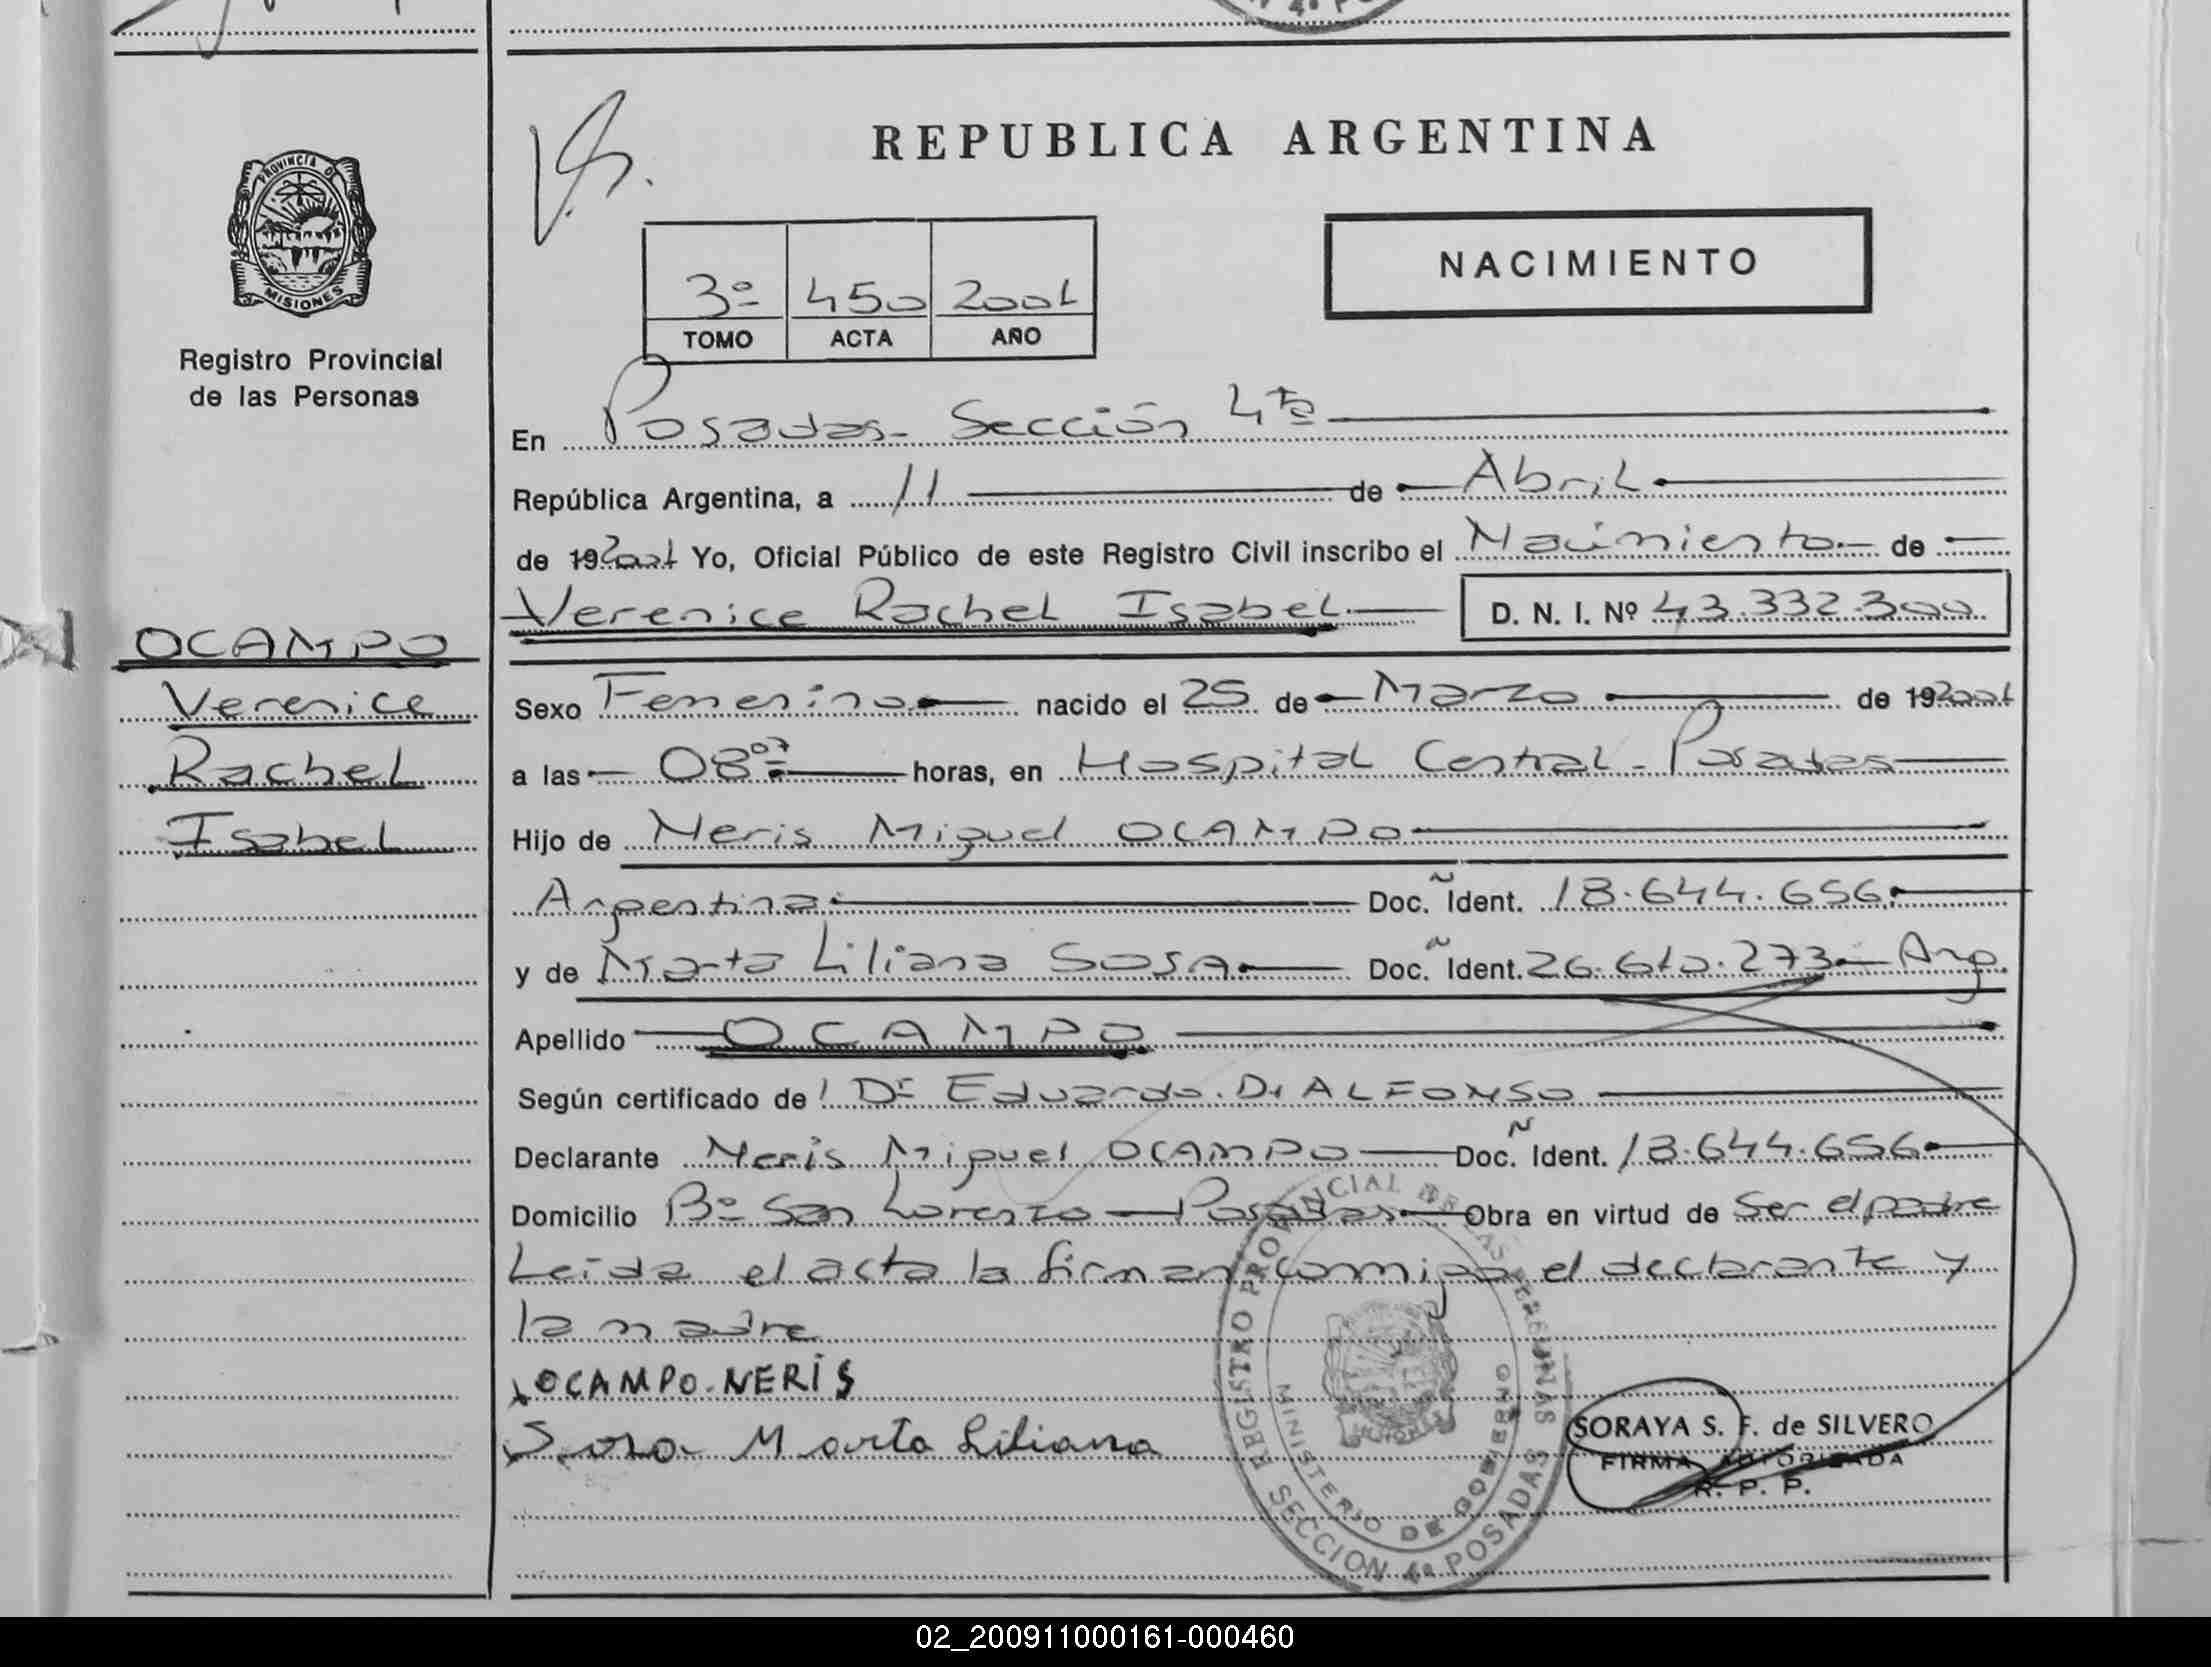 PROVINCIA DE
MISIONES
Registro Provincial
de las Personas
OCAMPO
Verenice
Rachel
Isabel
REPUBLICA ARGENTINA
NACIMIENTO
3º 450 2001
TOMO ACTA AÑO
En Posadas - Sección 4ta
República Argentina, a 11 de Abril
de 19 2001 Yo, Oficial Público de este Registro Civil inscribo el Nacimiento de
Verenice Rachel Isabel D. N. I. Nº 43.332.300
Sexo Femenino nacido el 25 de Marzo de 19 2001
a las 08 07 horas, en Hospital Central - Posadas
Hijo de Neris Miguel OCAMPO
Argentina Doc. Ident. 18.644.656
y de Marta Liliana SOSA Doc. Ident. 26.610.273 - Arg.
Apellido OCAMPO
Según certificado de Dr Eduardo D. ALFONSO
Declarante Neris Miguel OCAMPO Doc. Ident. 18.644.656
Domicilio Bº San Lorenzo - Posadas Obra en virtud de Ser el padre
Leída el acta la firman conmigo el declarante y
la madre
OCAMPO NERIS
Sosa Marta Liliana
REGISTRO PROVINCIAL DE LAS PERSONAS
MINISTERIO DE GOBIERNO
SECCION 4ª POSADAS
SORAYA S. F. de SILVERO
FIRMA AUTORIZADA
R. P. P.
02_200911000161-000460